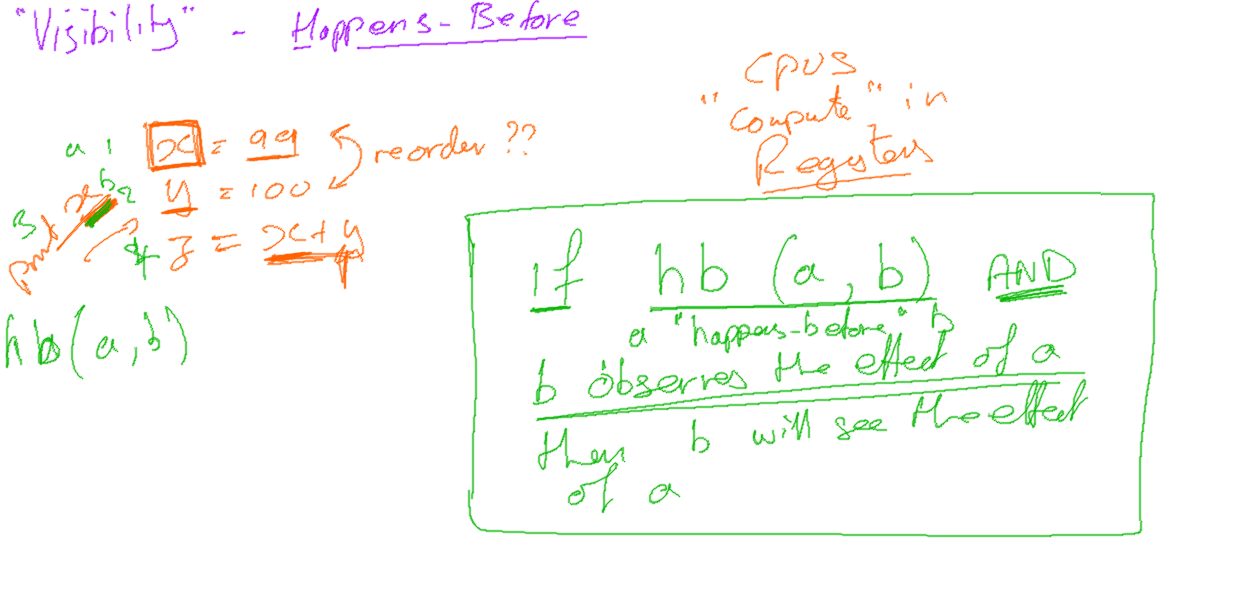 "Visibility" - Happens-Before
CPUS
"compute" in
Registers
a 1 x = 99
reorder ??
b 2 y = 100
3 print x
4 z = x+y
hb(a,b)
If hb (a, b) AND
a "happens-before" b
b observes the effect of a
then b will see the effect
of a